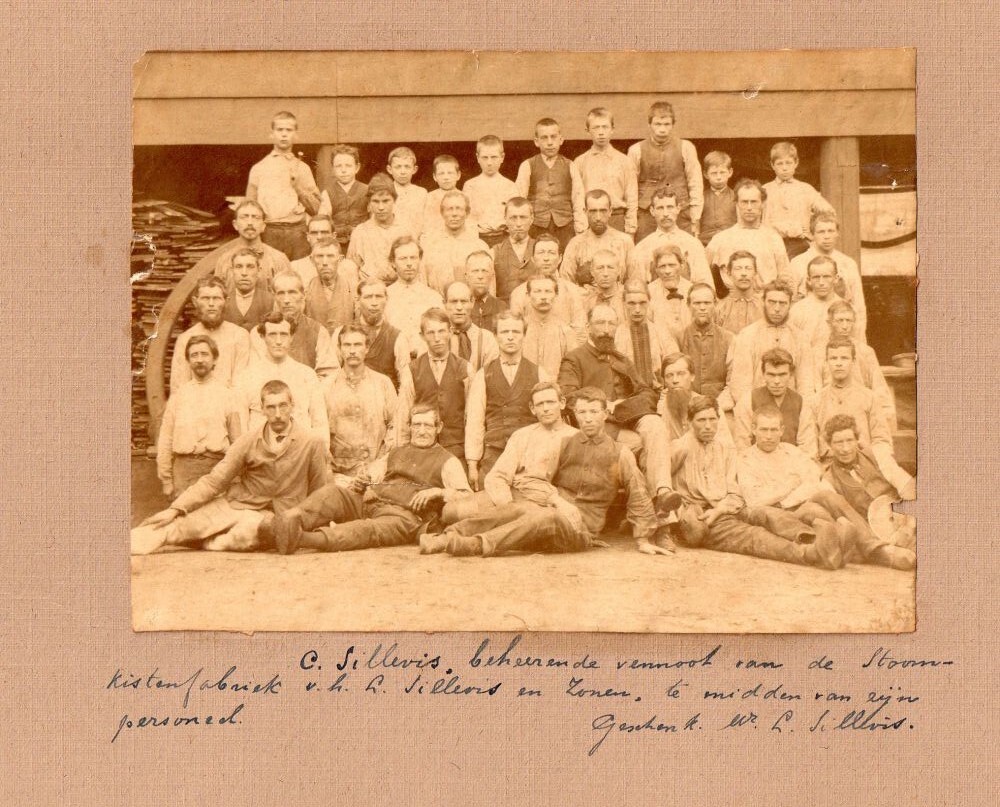 C. Sillevis, beheerende vennoot van de Stoom-
kistenfabriek v.h. L. Sillevis en Zonen, te midden van zijn
personeel.
Geschenk Mr. L. Sillevis.